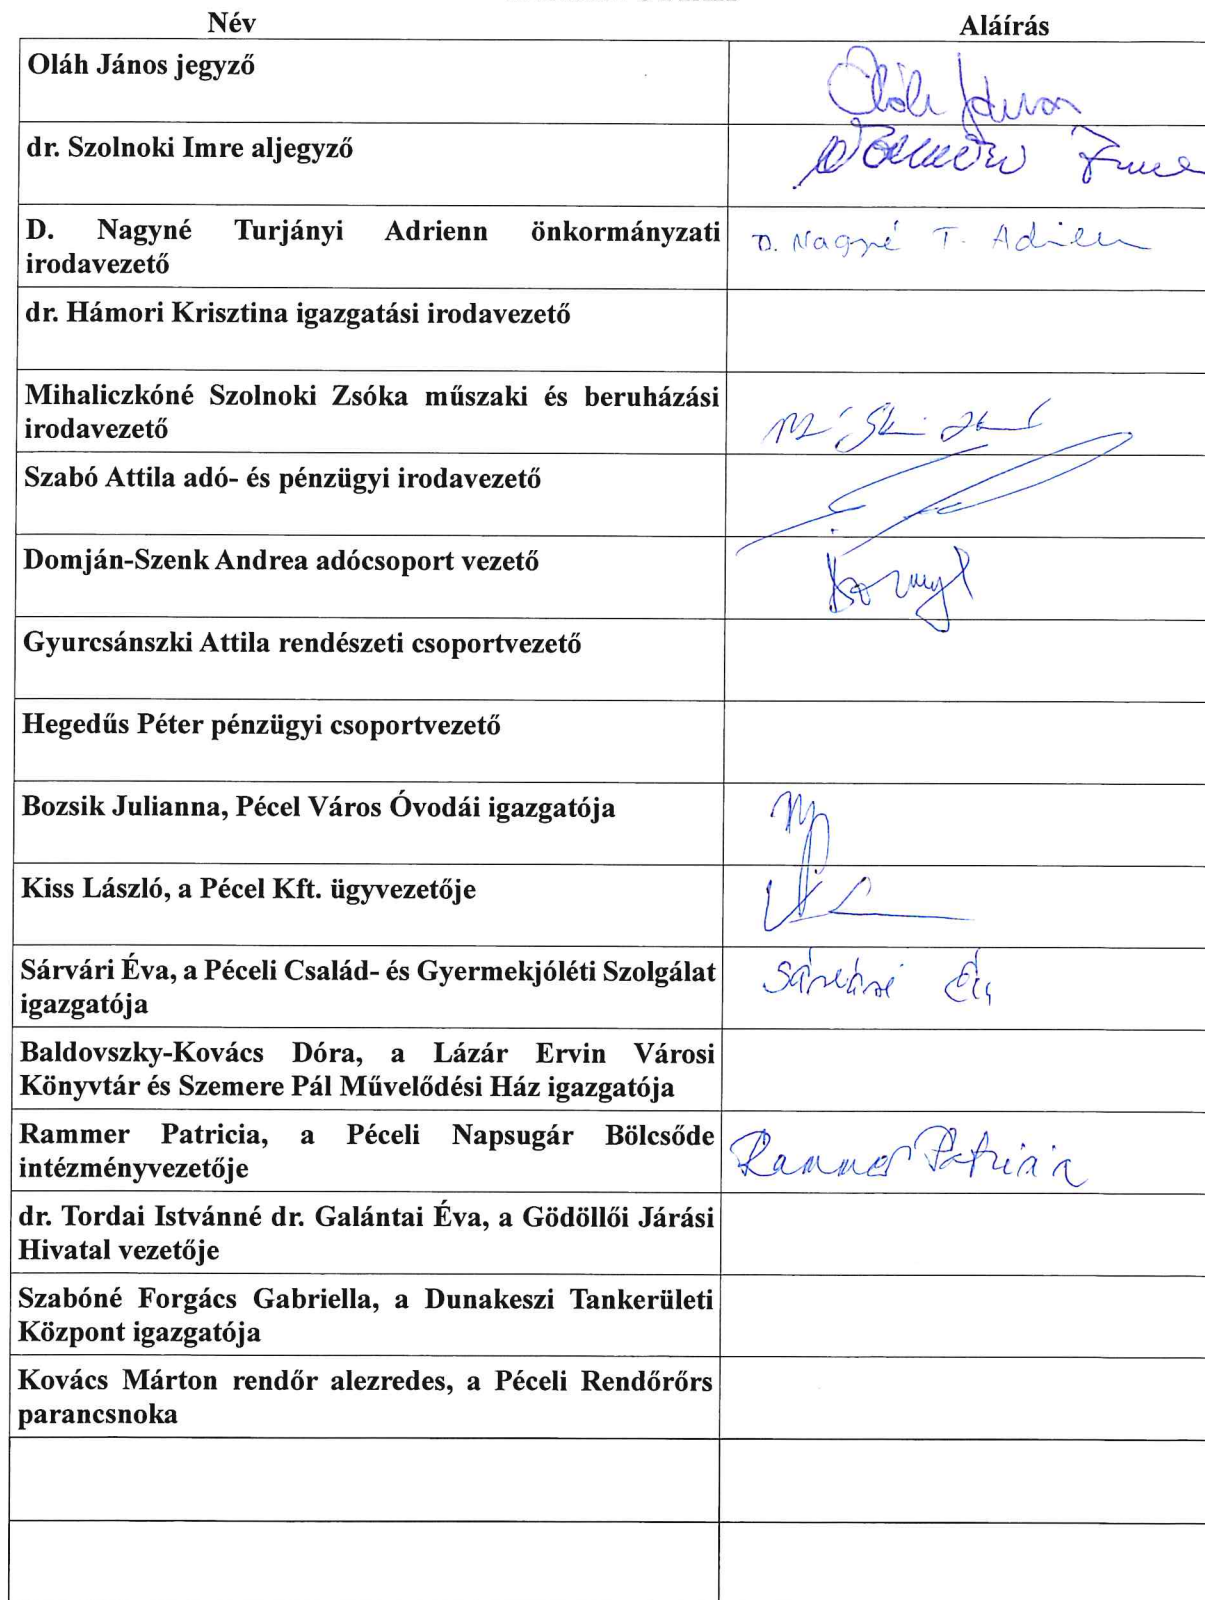 Név Aláírás
Oláh János jegyző Oláh János
dr. Szolnoki Imre aljegyző Imre
D. Nagyné Turjányi Adrienn önkormányzati D. Nagyné T. Adrienn
irodavezető
dr. Hámori Krisztina igazgatási irodavezető
Mihaliczkóné Szolnoki Zsóka műszaki és beruházási
irodavezető
Szabó Attila adó- és pénzügyi irodavezető
Domján-Szenk Andrea adócsoport vezető
Gyurcsánszki Attila rendészeti csoportvezető
Hegedűs Péter pénzügyi csoportvezető
Bozsik Julianna, Pécel Város Óvodái igazgatója
Kiss László, a Pécel Kft. ügyvezetője
Sárvári Éva, a Péceli Család- és Gyermekjóléti Szolgálat Sárvári Éva
igazgatója
Baldovszky-Kovács Dóra, a Lázár Ervin Városi
Könyvtár és Szemere Pál Művelődési Ház igazgatója
Rammer Patricia, a Péceli Napsugár Bölcsőde Rammer Patricia
intézményvezetője
dr. Tordai Istvánné dr. Galántai Éva, a Gödöllői Járási
Hivatal vezetője
Szabóné Forgács Gabriella, a Dunakeszi Tankerületi
Központ igazgatója
Kovács Márton rendőr alezredes, a Péceli Rendőrőrs
parancsnoka